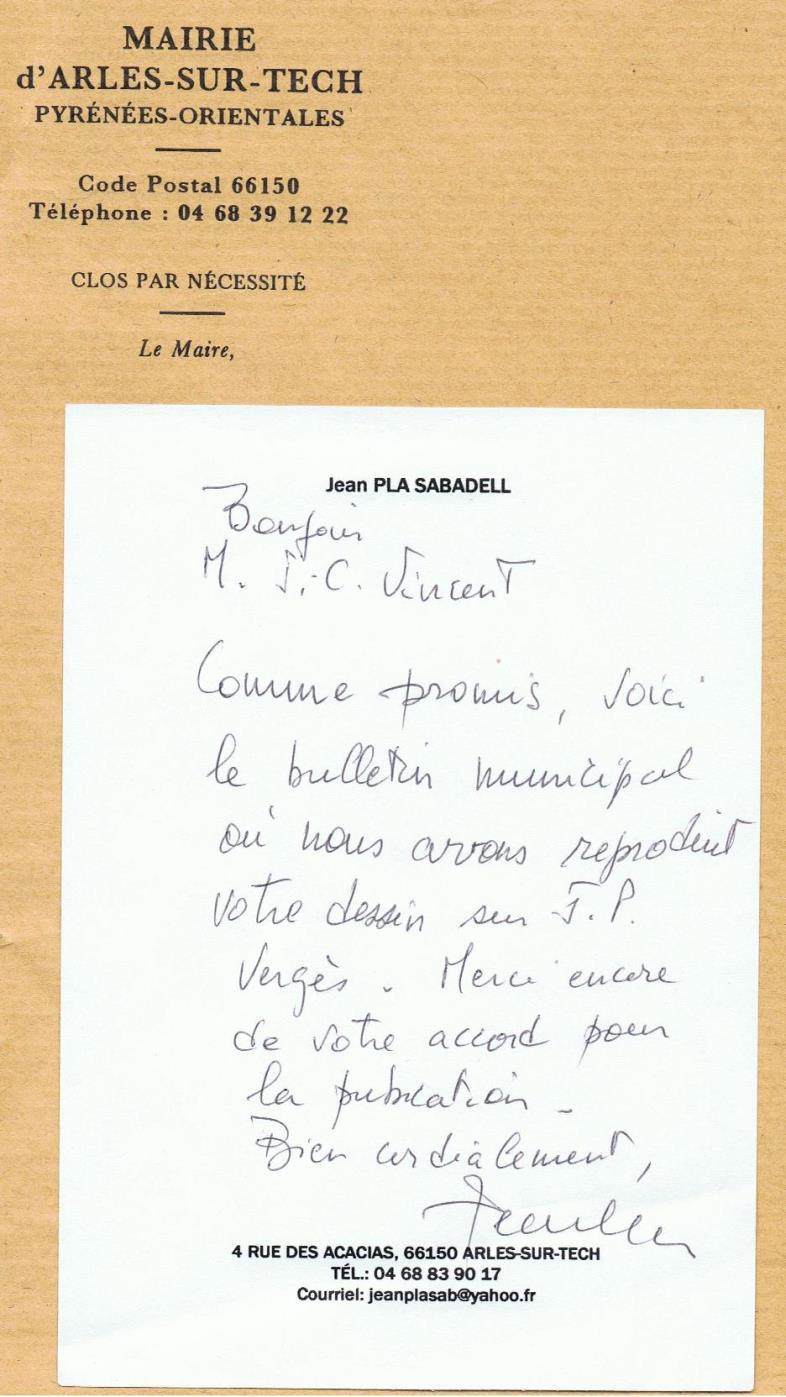 MAIRIE
d'ARLES-SUR-TECH
PYRÉNÉES-ORIENTALES
Code Postal 66150
Téléphone : 04 68 39 12 22
CLOS PAR NÉCESSITÉ
Le Maire,
Jean PLA SABADELL
Bonjour
M. J.-C. Vincent
Comme promis, voici
le bulletin municipal
où nous avons reproduit
votre dessin sur J.P.
Vergès. Merci encore
de votre accord pour
la publication.
Bien cordialement,
4 RUE DES ACACIAS, 66150 ARLES-SUR-TECH
TÉL.: 04 68 83 90 17
Courriel: jeanplasab@yahoo.fr